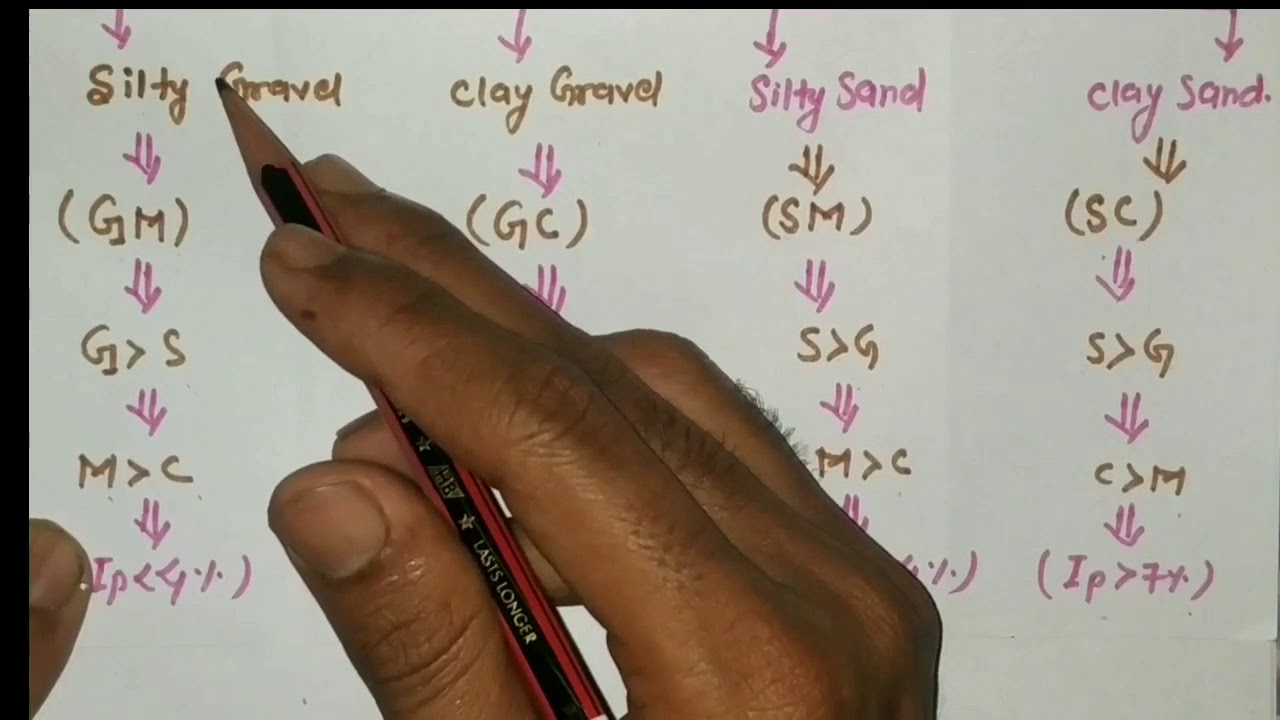 Silty Gravel clay Gravel Silty Sand clay Sand.
(GM) (GC) (SM) (SC)
G > S S>G S>G
M > C M > C C>M
Ip<4%) 4%) (Ip>7%)
LASTS LONGER